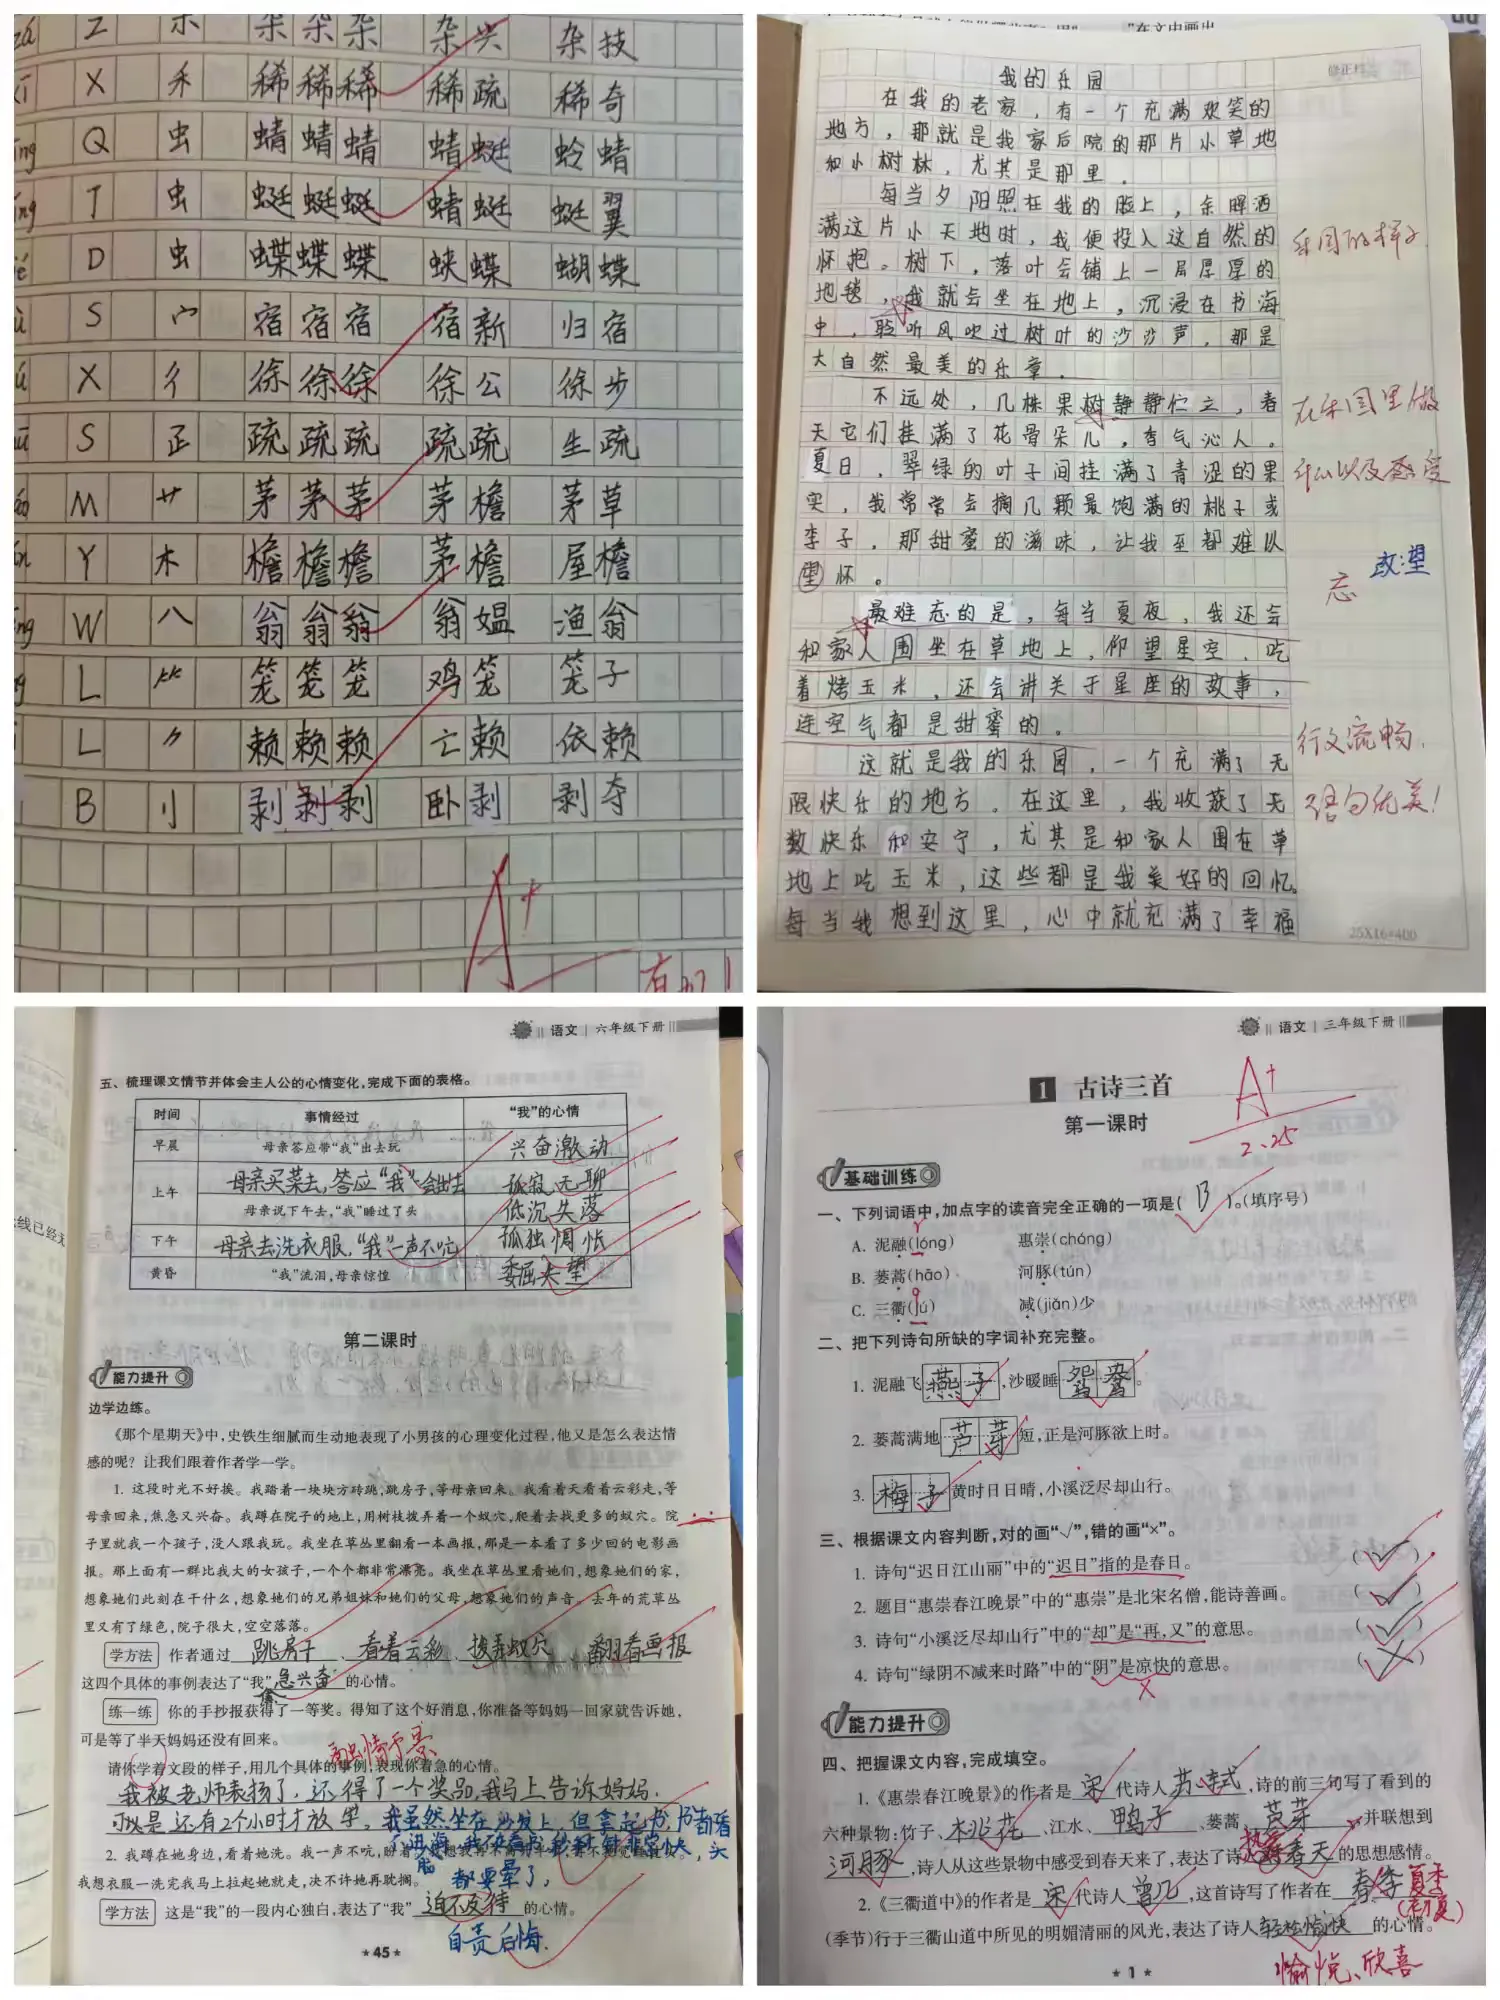 Z 杂 杂 杂 杂 兴 杂 技
X 禾 稀 稀 稀 稀 疏 稀 奇
Q 虫 蜻 蜻 蜻 蜻 蜓 蛉 蜻
T 虫 蜓 蜓 蜓 蜻 蜓 蜓 翼
D 虫 蝶 蝶 蝶 蛱 蝶 蝴 蝶
S 宀 宿 宿 宿 宿 新 归 宿
X 彳 徐 徐 徐 徐 公 徐 步
S 疏 疏 疏 疏 疏 生 疏
M 艹 茅 茅 茅 茅 檐 茅 草
Y 木 檐 檐 檐 茅 檐 屋 檐
W 八 翁 翁 翁 翁 媪 渔 翁
L 笼 笼 笼 鸡 笼 笼 子
L 赖 赖 赖 亡 赖 依 赖
B 刂 剥 剥 剥 卧 剥 剥 夺
A+
在文中画出
修正栏
我的乐园
在我的老家，有一个充满欢笑的
地方，那就是我家后院的那片小草地
和小树林，尤其是那里。
每当夕阳照在我的脸上，余晖洒
满这片小天地时，我便投入这自然的
怀抱。树下，落叶会铺上一层厚厚的
地毯，我就会坐在地上，沉浸在书海
中，聆听风吹过树叶的沙沙声，那是
大自然最美的乐章。
不远处，几株果树静静伫立，春
天它们挂满了花骨朵儿，香气沁人。
夏日，翠绿的叶子间挂满了青涩的果
实，我常常会摘几颗最饱满的桃子或
李子，那甜蜜的滋味，让我至都难以
望怀。
最难忘的是，每当夏夜，我还会
和家人围坐在草地上，仰望星空，吃
着烤玉米，还会讲关于星座的故事，
连空气都是甜蜜的。
这就是我的乐园，一个充满了无
限快乐的地方。在这里，我收获了无
数快乐和安宁，尤其是和家人围在草
地上吃玉米，这些都是我美好的回忆。
每当我想到这里，心中就充满了幸福
25X16=400
乐园的样子
在乐园里做
什么以及感受
忘
改:望
行文流畅，
语句优美！
语文 六年级下册
五、梳理课文情节并体会主人公的心情变化,完成下面的表格。
时间 事情经过 “我”的心情
早晨 母亲答应带“我”出去玩 兴奋激动
上午 母亲买菜去,答应“我”会出去 孤寂无聊
母亲说下午去,“我”睡过了头 低沉失落
下午 母亲去洗衣服,“我”一声不吭 孤独惆怅
黄昏 “我”流泪,母亲惊惶 委屈失望
第二课时
能力提升
边学边练。
《那个星期天》中,史铁生细腻而生动地表现了小男孩的心理变化过程,他又是怎么表达情
感的呢？让我们跟着作者学一学。
1. 这段时光不好挨。我踏着一块块方砖跳,跳房子,等母亲回来。我看着天看着云彩走,等
母亲回来,焦急又兴奋。我蹲在院子的地上,用树枝拨弄着一个蚁穴,爬着去找更多的蚁穴。院
子里就我一个孩子,没人跟我玩。我坐在草丛里翻看一本画报,那是一本看了多少回的电影画
报。那上面有一群比我大的女孩子,一个个都非常漂亮。我坐在草丛里看她们,想象她们的家,
想象她们此刻在干什么,想象她们的兄弟姐妹和她们的父母,想象她们的声音。去年的荒草丛
里又有了绿色,院子很大,空空落落。
学方法 作者通过 跳房子、看着云彩、拨弄蚁穴、翻看画报
这四个具体的事例表达了“我” 急兴奋 的心情。
焦
练一练 你的手抄报获得了一等奖。得知了这个好消息,你准备等妈妈一回家就告诉她,
可是等了半天妈妈还没有回来。
融情于景
请你学着文段的样子,用几个具体的事例,表现你着急的心情。
我被老师表扬了,还得了一个奖品,我马上告诉妈妈.
可是还有2个小时才放学。我虽然坐在沙发上,但拿起书,
都要晕了,
2. 我蹲在她身边,看着她洗。我一声不吭,盼着
我想衣服一洗完我马上拉起她就走,决不许她再耽搁。
学方法 这是“我”的一段内心独白,表达了“我” 迫不及待 的心情。
自责后悔.
★45★
语文 三年级下册
1 古诗三首
A+
2.25
第一课时
基础训练
一、下列词语中,加点字的读音完全正确的一项是( B )。(填序号)
A. 泥融(lóng) 惠崇(chóng)
B. 蒌蒿(hāo) 河豚(tún)
C. 三衢(jú) 减(jiǎn)少
二、把下列诗句所缺的字词补充完整。
1. 泥融飞燕子,沙暖睡鸳鸯。
2. 蒌蒿满地芦芽短,正是河豚欲上时。
3. 梅子黄时日日晴,小溪泛尽却山行。
三、根据课文内容判断,对的画“√”,错的画“×”。
1. 诗句“迟日江山丽”中的“迟日”指的是春日。 (√)
2. 题目“惠崇春江晚景”中的“惠崇”是北宋名僧,能诗善画。 (√)
3. 诗句“小溪泛尽却山行”中的“却”是“再,又”的意思。 (√)
4. 诗句“绿阴不减来时路”中的“阴”是凉快的意思。 (×)
能力提升
四、把握课文内容,完成填空。
1.《惠崇春江晚景》的作者是 宋 代诗人 苏轼 ,诗的前三句写了看到的
六种景物:竹子、 桃花 、江水、 鸭子 、蒌蒿、 芦芽 ,并联想到
河豚 ,诗人从这些景物中感受到春天来了,表达了诗人 春天 的思想感情。
2.《三衢道中》的作者是 宋 代诗人 曾几 ,这首诗写了作者在 春季 夏季
(初夏)
(季节)行于三衢山道中所见的明媚清丽的风光,表达了诗人 轻松愉快 的心情。
愉悦、欣喜
★1★